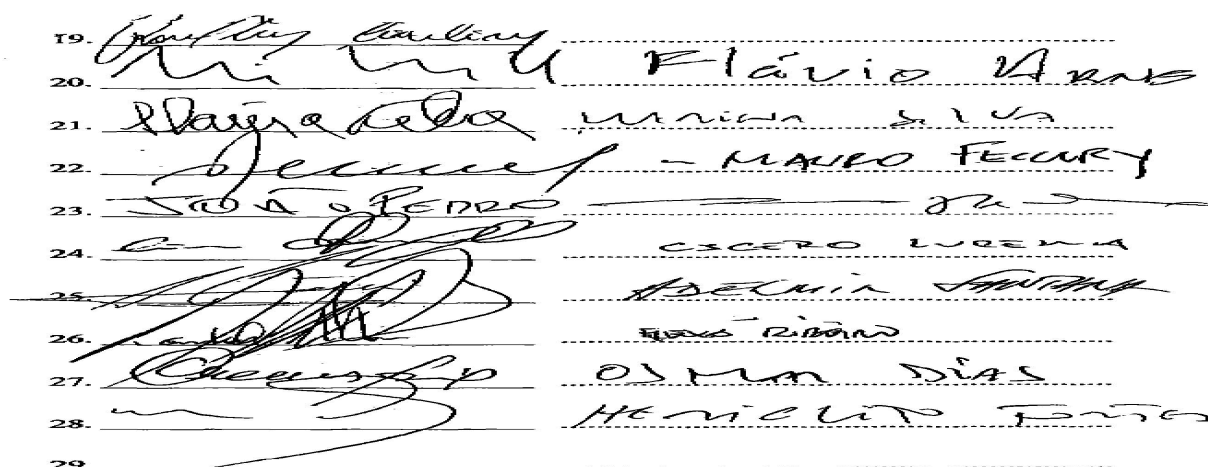 19.
20. Flávio Arns
21. Marina Silva MARINA SILVA
22. - MAURO FECURY
23. JOÃO PEDRO
24. CICERO LUCENA
25. ADELMIR SANTANA
26. RIBEIRO
27. OSMAR DIAS
28. HERÁCLITO FORTES
29